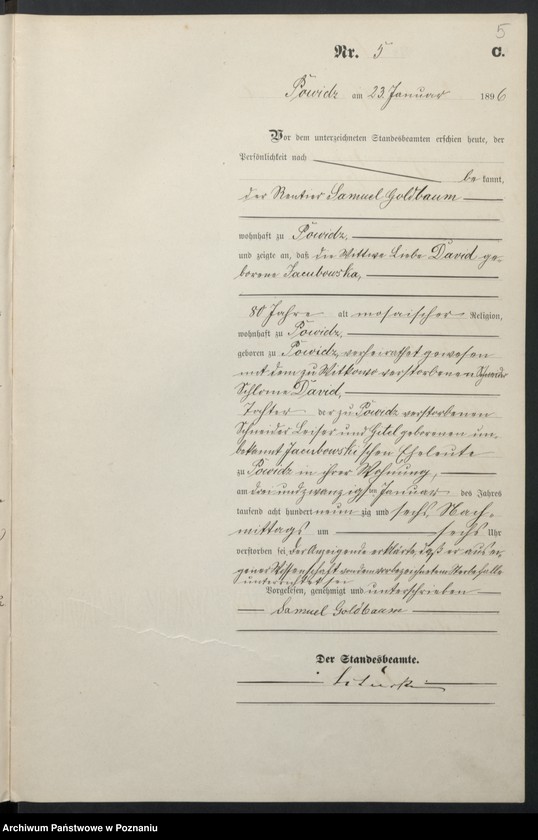 5
Nr. 5 C.
Powidz am 23. Januar 1896
Vor dem unterzeichneten Standesbeamten erschien heute, der
Persönlichkeit nach
be kannt,
der Rentier Samuel Goldbaum
wohnhaft zu Powidz,
und zeigte an, daß die Wittwe Liebe David ge-
borene Jacubowska,
80 Jahre alt mosaischer Religion,
wohnhaft zu Powidz,
geboren zu Powidz, verheirathet gewesen
mit dem zu Witkowo verstorbenen Schneider
Schlome David,
Tochter der zu Powidz verstorbenen
Schneider Leiser und Gitel geborenen un-
bekannt Jacubowskischen Eheleute
zu Powidz in ihrer Wohnung,
am drei und zwanzigsten Januar des Jahres
tausend acht hundert neun zig und sechs, Nach-
mittags um sechs Uhr
verstorben sei, der Anzeigende erklärte, daß er aus ei-
gener Wissenschaft von dem vorbezeichneten Sterbefalle
unterrichtet sei
Vorgelesen, genehmigt und unterschrieben
Samuel Goldbaum
Der Standesbeamte.
Archiwum Państwowe w Poznaniu